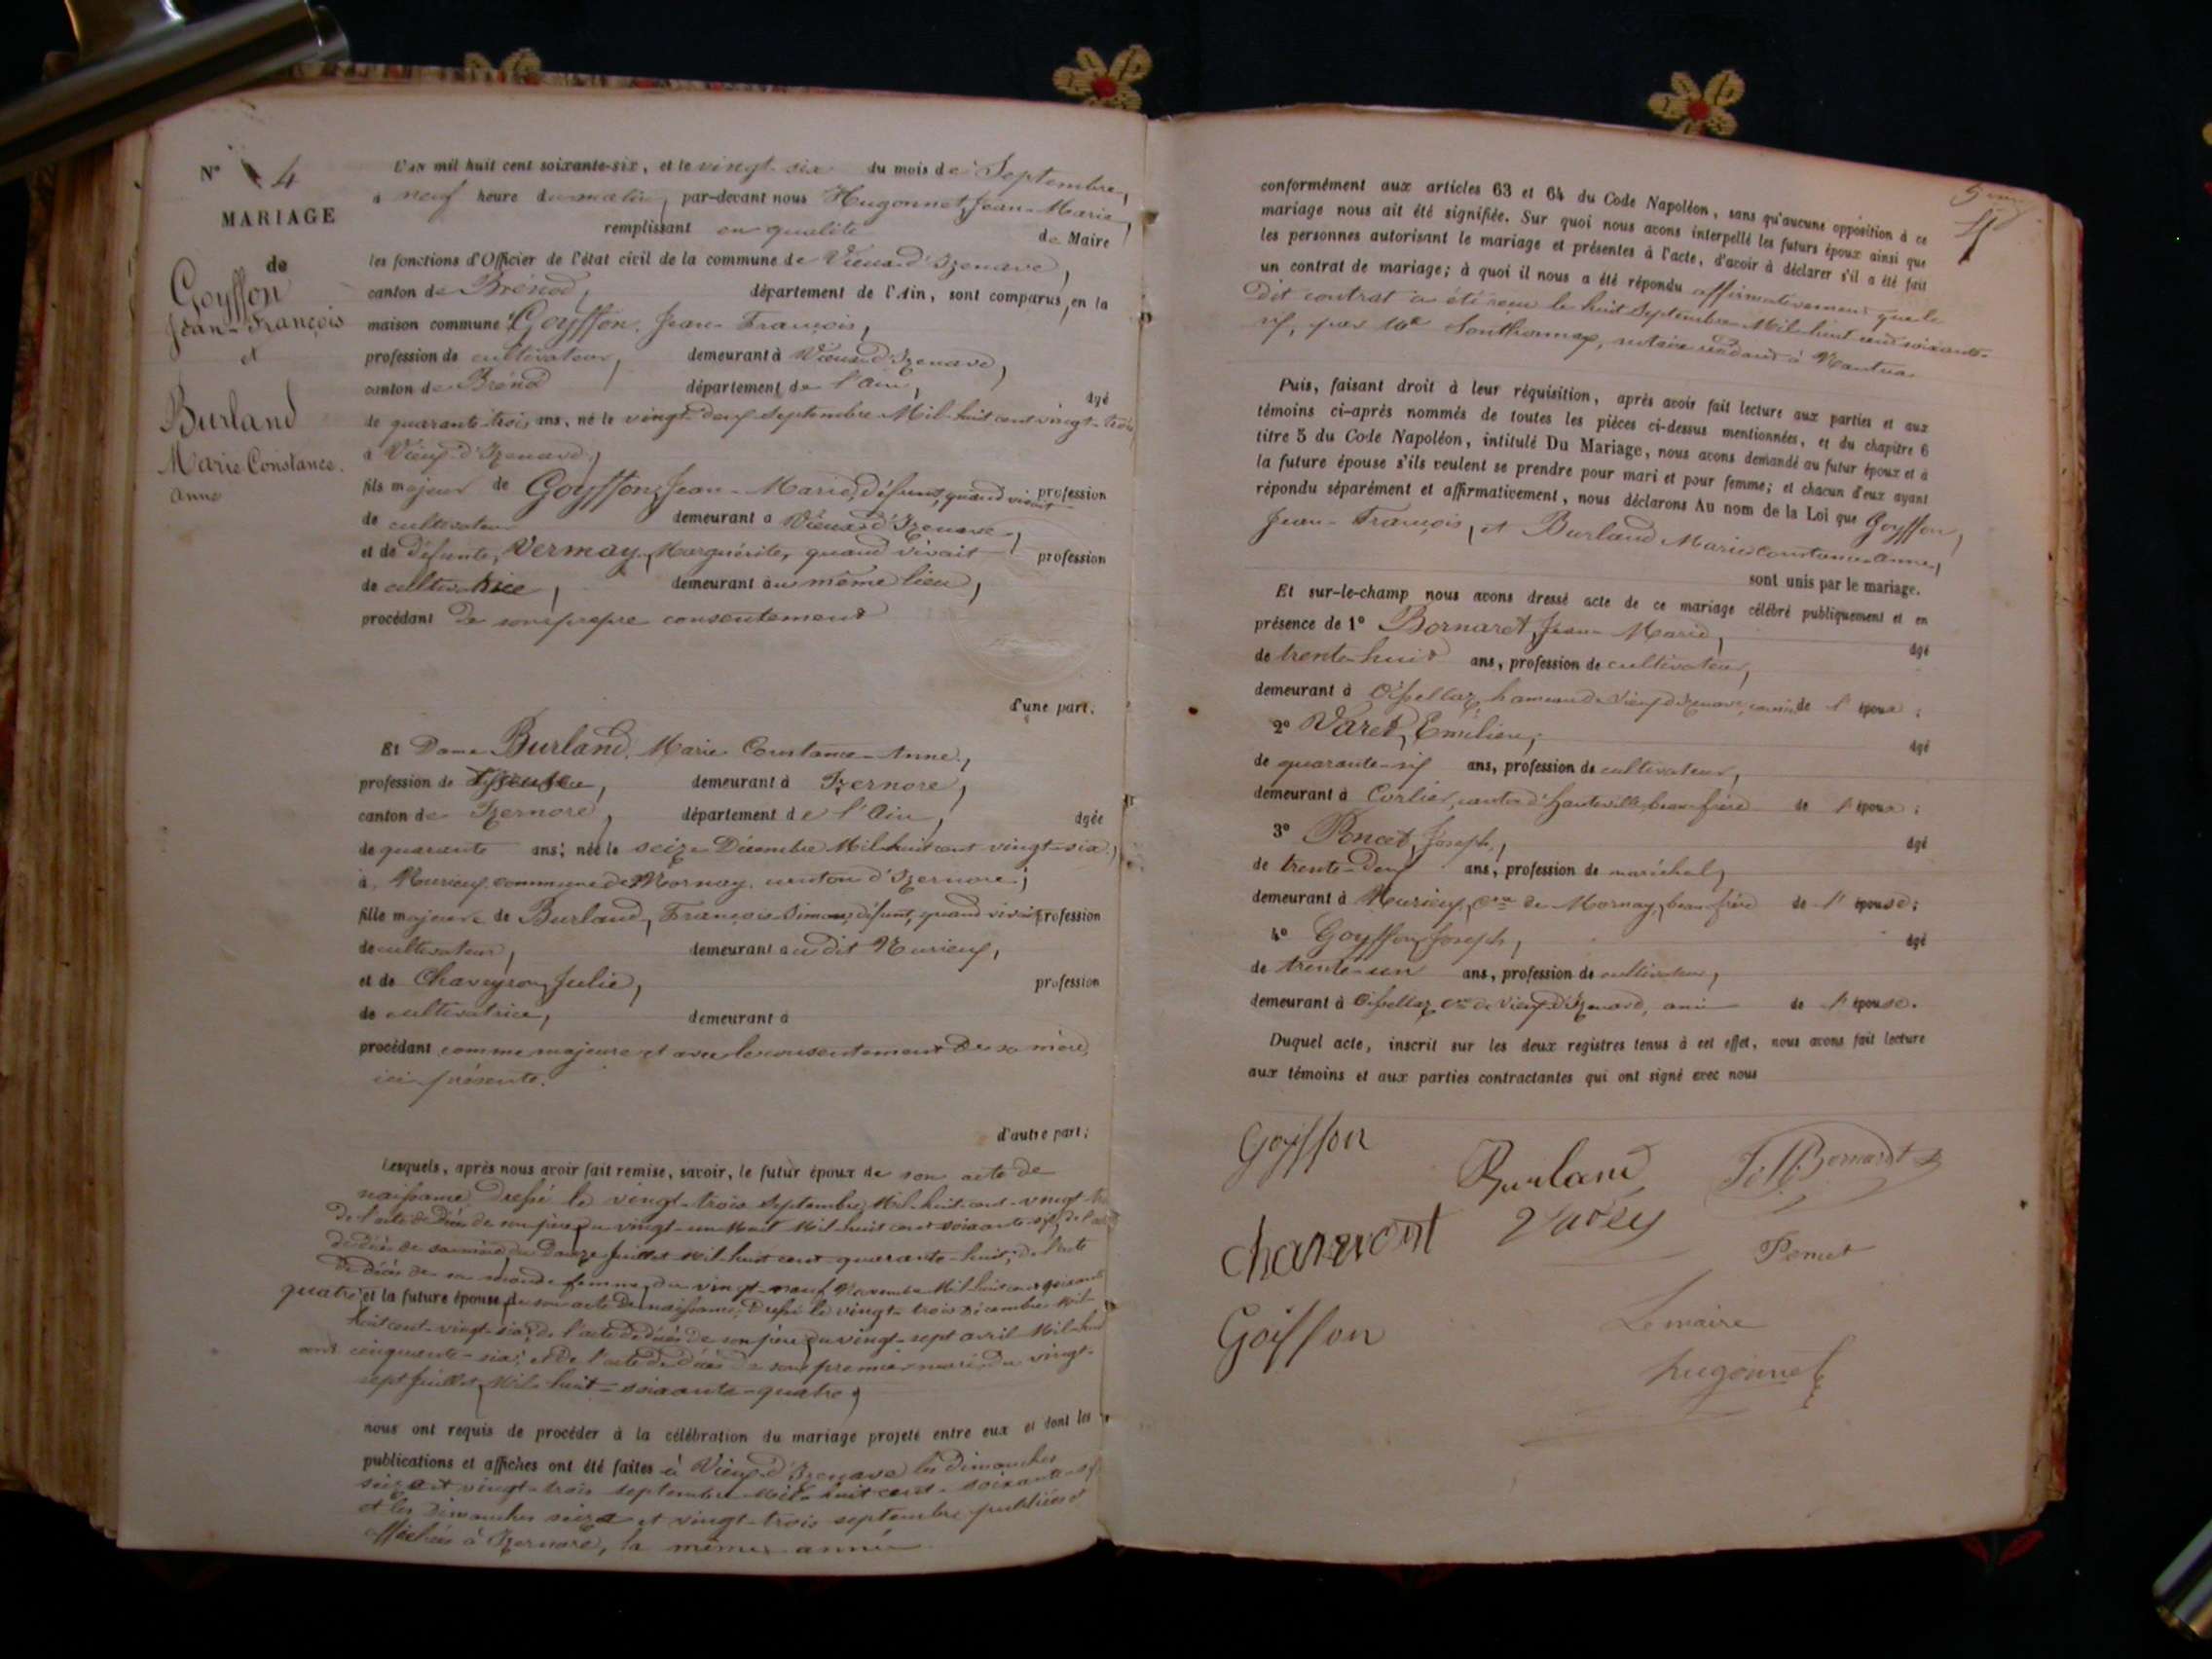 N° 4
MARIAGE
de
Goyffon
Jean-François
et
Burland
Marie Constance
Anne
L'AN mil huit cent soixante-six, et le vingt-six du mois de Septembre,
à neuf heure du matin, par-devant nous Hugonnet, Jean-Marie,
remplissant en qualité de Maire
les fonctions d'Officier de l'état civil de la commune de Vieux-d'Izenave,
canton de Brénod, département de l'Ain, sont comparus, en la
maison commune Goyffon, Jean-François,
profession de cultivateur, demeurant à Vieux-d'Izenave,
canton de Brénod département de l'Ain, âgé
de quarante-trois ans, né le vingt-deux septembre Mil-huit cent vingt-trois
à Vieux-d'Izenave,
fils majeur de Goyffon, Jean-Marie, défunt, quand vivait profession
de cultivateur demeurant à Vieux-d'Izenave,
et de défunte, Vermay, Marguérite, quand vivait profession
de cultivatrice, demeurant au même lieu,
procédant de son propre consentement
d'une part.
Et Dame Burland, Marie Constance-Anne,
profession de demeurant à Izernore,
canton de Izernore, département de l'Ain, âgée
de quarante ans; née le seize Décembre Mil huit cent vingt-six,
à Meurieux, commune de Mornay, canton d'Izernore;
fille majeure de Burland, François-Simon, défunt, quand vivait profession
de cultivateur, demeurant au dit Meurieux,
et de Chaveyron, Julie, profession
de cultivatrice, demeurant à
procédant comme majeure et avec le consentement de sa mère,
ici présente.
d'autre part;
Lesquels, après nous avoir fait remise, savoir, le futur époux de son acte de
naissance, dressé le vingt-trois septembre Mil-huit-cent-vingt-
de l'acte de décès de son père, du vingt-un Mil-huit cent soixante-six, de l'acte
de décès de sa mère, du douze juillet Mil-huit cent quarante-huit, de l'acte
de décès de sa femme, du vingt-neuf Novembre Mil huit cent soixante
quatre; et la future épouse, de son acte de naissance, dressé le vingt-trois Décembre Mil-
huit cent-vingt-six; de l'acte de décès de son père du vingt-sept avril Mil-huit
cent cinquante-six; et de l'acte de décès de son premier mari, du vingt-
sept juillet, Mil-huit-soixante-quatre,
nous ont requis de procéder à la célébration du mariage projeté entre eux et dont les
publications et affiches ont été faites à Vieux-d'Izenave les dimanches
seize et vingt-trois septembre Mil-huit cent-soixante-six
et les dimanches seize et vingt-trois septembre publiées et
affichées à Izernore, la même année
conformément aux articles 63 et 64 du Code Napoléon, sans qu'aucune opposition à ce
mariage nous ait été signifiée. Sur quoi nous avons interpellé les futurs époux ainsi que
les personnes autorisant le mariage et présentes à l'acte, d'avoir à déclarer s'il a été fait
un contrat de mariage; à quoi il nous a été répondu affirmativement que le
dit contrat a été reçu le huit Septembre Mil-huit cent soixante-
six, par Me Sonthonnax, notaire résidant à Nantua
Puis, faisant droit à leur réquisition, après avoir fait lecture aux parties et aux
témoins ci-après nommés de toutes les pièces ci-dessus mentionnées, et du chapitre 6
titre 5 du Code Napoléon, intitulé Du Mariage, nous avons demandé au futur époux et à
la future épouse s'ils veulent se prendre pour mari et pour femme; et chacun d'eux ayant
répondu séparément et affirmativement, nous déclarons Au nom de la Loi que Goyffon,
Jean-François, et Burland Marie Constance Anne,
sont unis par le mariage.
Et sur-le-champ nous avons dressé acte de ce mariage célébré publiquement et en
présence de 1° Bornaret, Jean-Marie, âgé
de trente-huit ans, profession de cultivateur,
demeurant à hameau de Vieux-d'Izenave, de l'époux;
2° Varet, Emilien, âgé
de quarante-six ans, profession de cultivateur,
demeurant à Corlier, canton d'Hauteville, beau-frère de l'époux;
3° Poncet, Joseph, âgé
de trente-deux ans, profession de maréchal,
demeurant à Meurieux, Cne de Mornay, beau-frère de l'épouse;
4° Goyffon, Joseph, âgé
de trente-un ans, profession de cultivateur,
demeurant à Cne de Vieux-d'Izenave, ami de l'épouse.
Duquel acte, inscrit sur les deux registres tenus à cet effet, nous avons fait lecture
aux témoins et aux parties contractantes qui ont signé avec nous
Goyffon
Burland
J.M. Bornaret
Poncet
Goiffon
Le maire
hugonnet